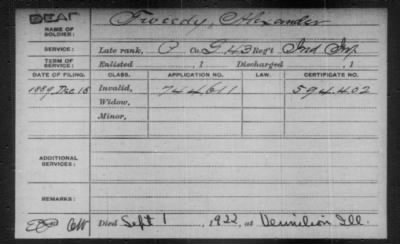 DEAF
NAME OF SOLDIER: Tweedy, Alexander
SERVICE: Late rank, P Co. G, 43 Reg't Ind Inf
TERM OF SERVICE: Enlisted , 1 Discharged , 1
DATE OF FILING. CLASS. APPLICATION NO. LAW. CERTIFICATE NO.
1889 Dec 16 Invalid, 744611 594402
Widow,
Minor,
ADDITIONAL SERVICES:
REMARKS:
Died Sept 1 , 1922, at Vermilion Ill.